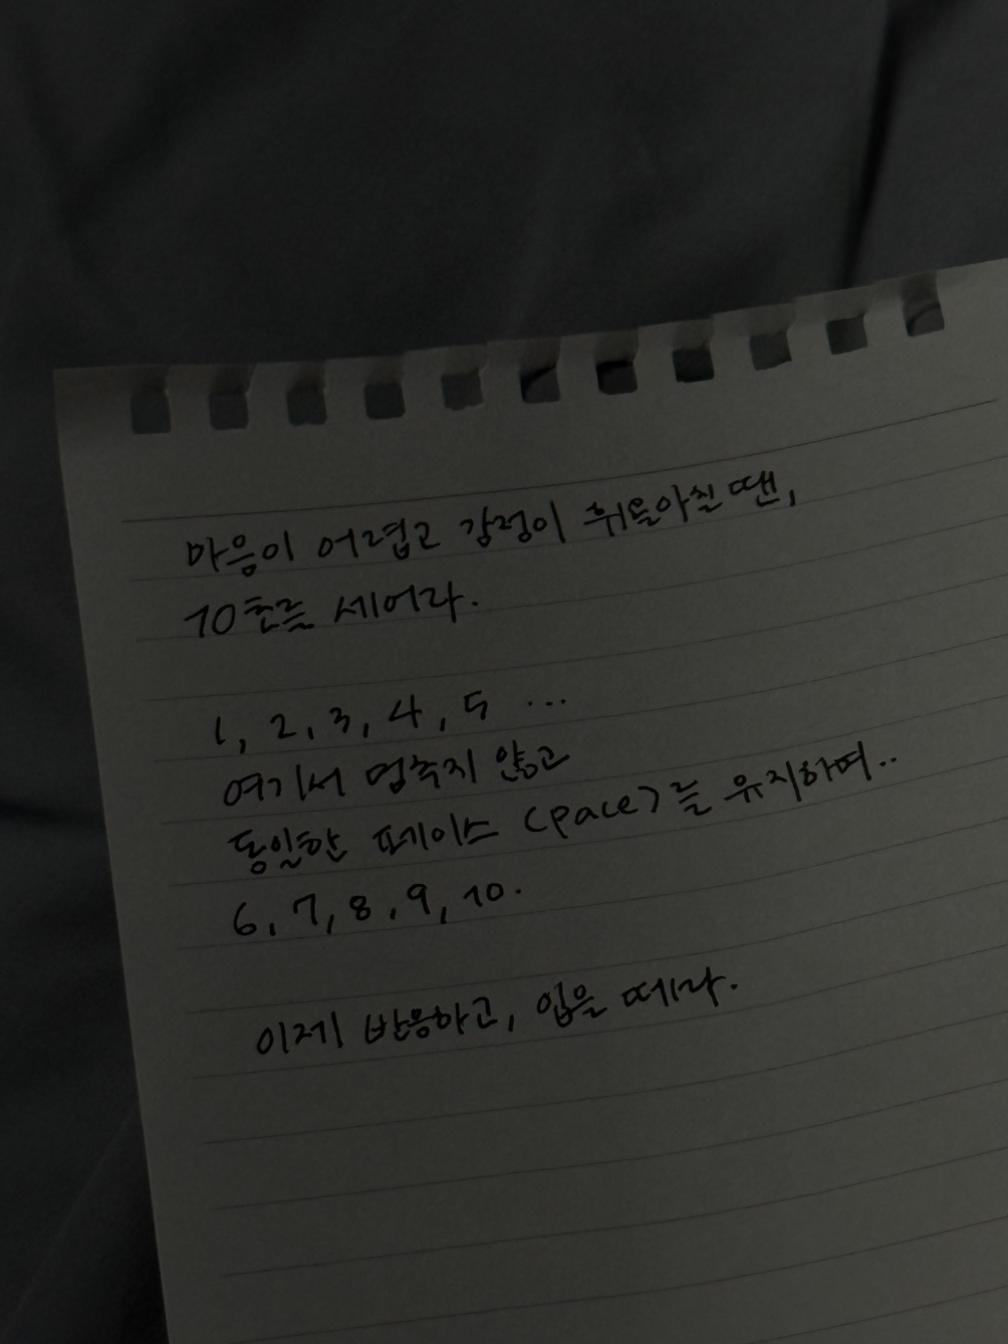 마음이 어렵고 감정이 휘몰아칠 땐,
10초를 세어라.
1, 2, 3, 4, 5 ...
여기서 멈추지 않고
동일한 페이스 (pace)를 유지하며..
6, 7, 8, 9, 10.
이제 반응하고, 입을 떼라.